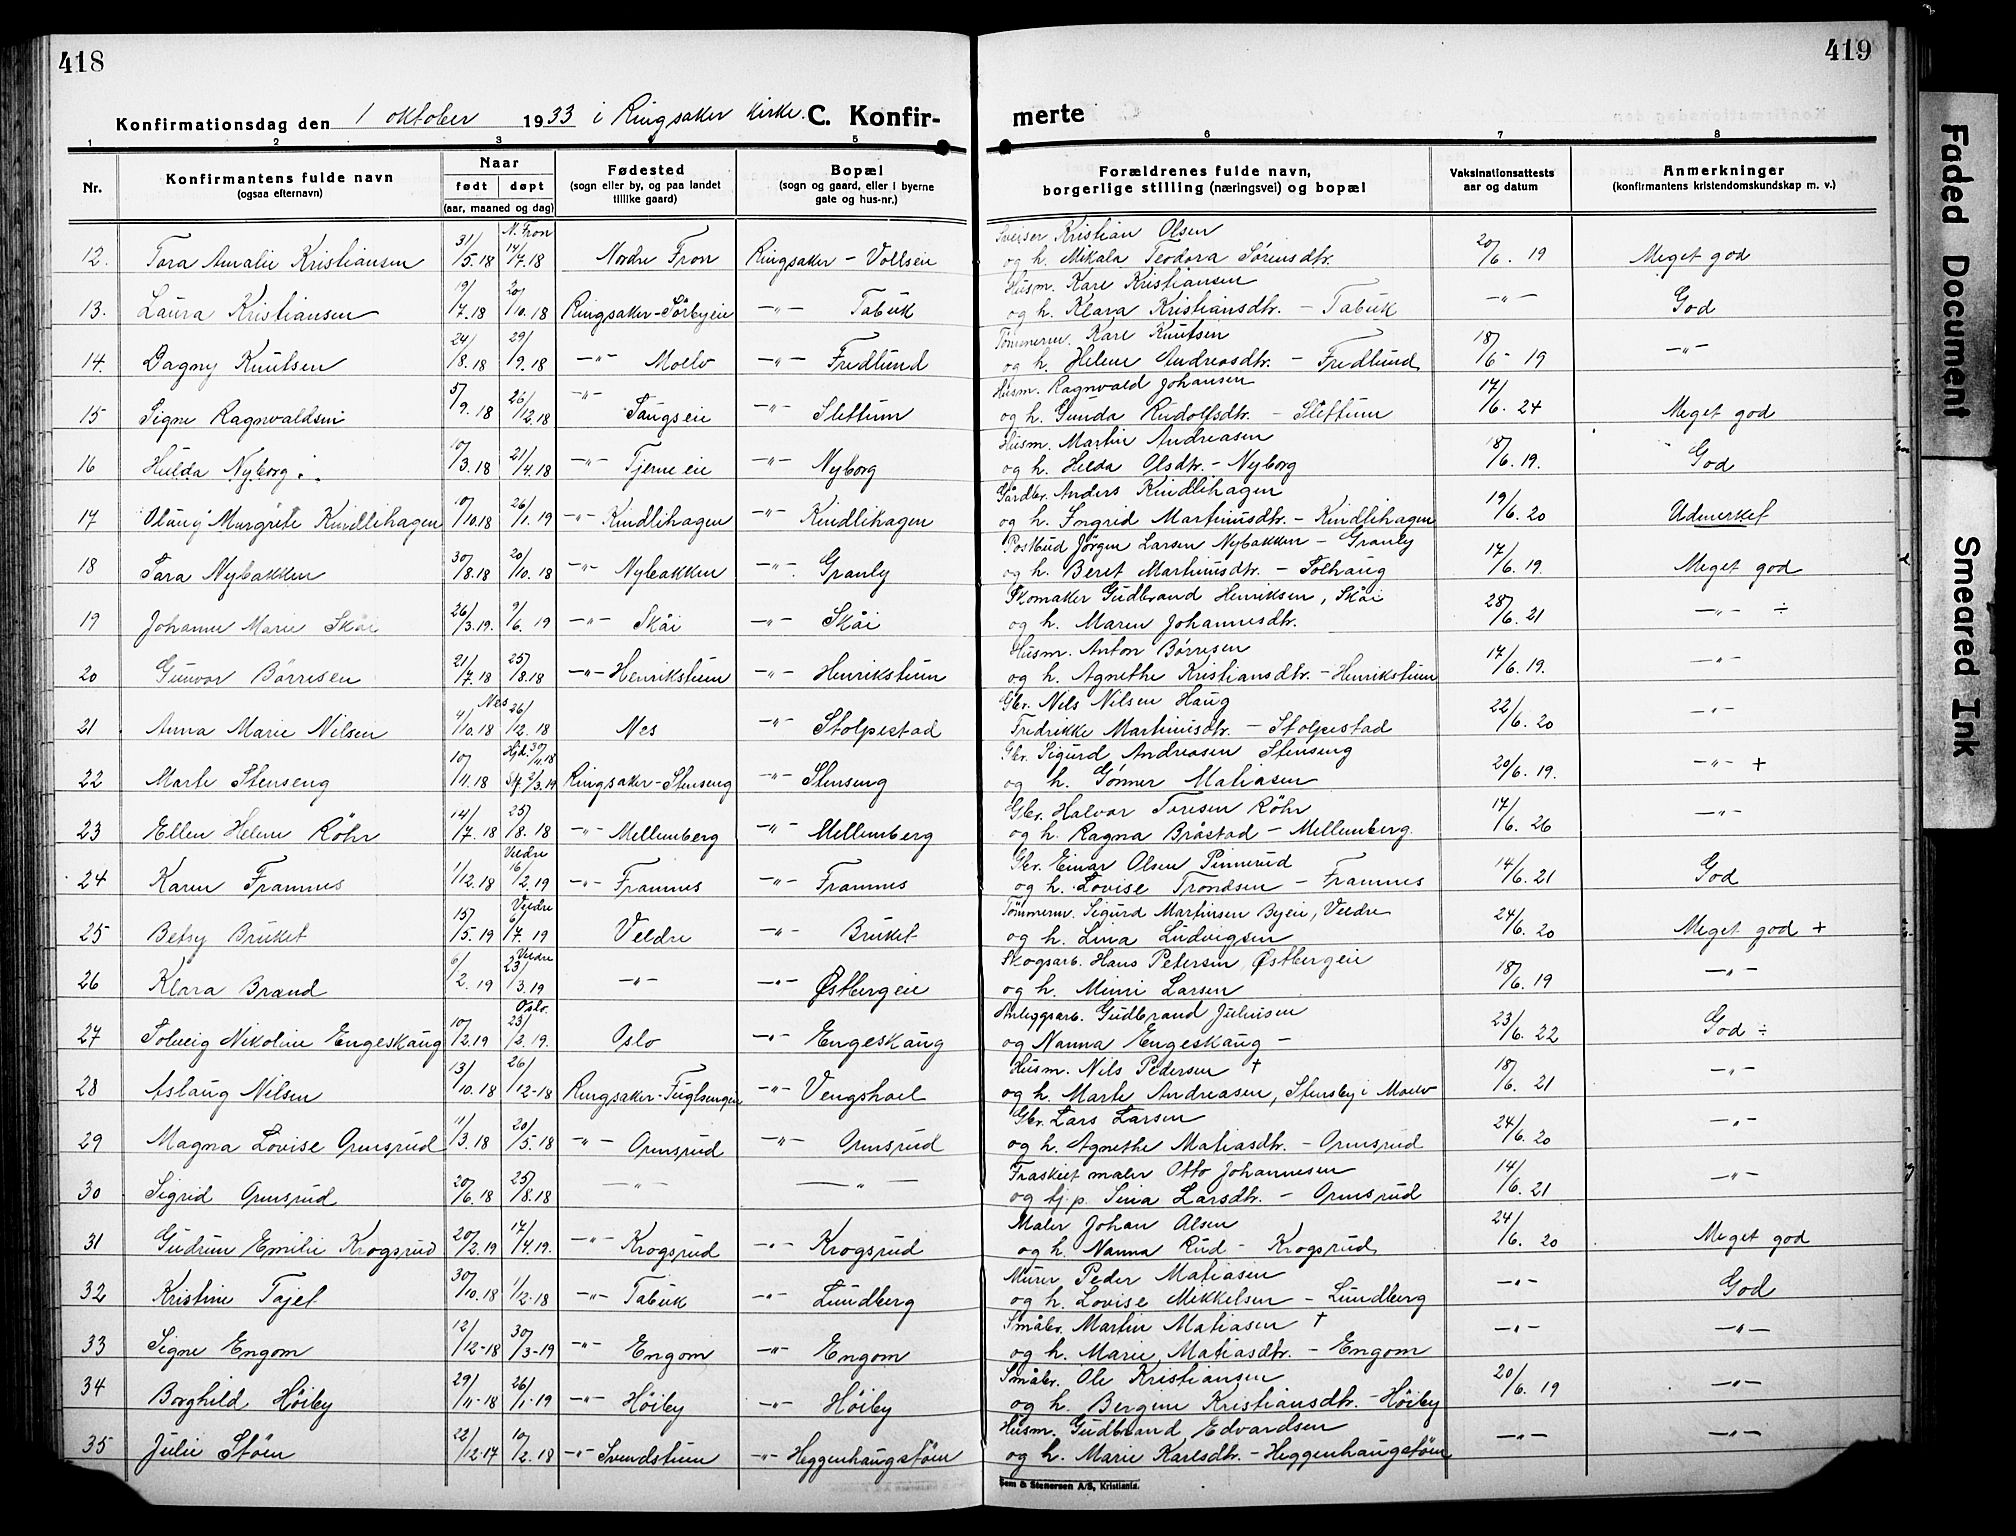 418
Konfirmationsdag den 1 oktober 1933 i Ringsaker kirke. C. Konfir-
1 2 3 4 5
Nr. Konfirmantens fulde navn (ogsaa efternavn) Naar født døpt (aar, maaned og dag) Fødested (sogn eller by, og paa landet tillike gaard) Bopæl (sogn og gaard, eller i byerne gate og hus-nr.)
12. Tora Amalie Kristiansen 31/5.18 N. Fron 14/7.18 Nordre Fron Ringsaker - Vollseie
13. Laura Kristiansen 19/7.18 20/10.18 Ringsaker-Sørbyeie -"- Tabuk
14. Dagny Knutsen 24/8.18 29/9.18 -"- Moelv -"- Fredlund
15 Signe Ragnvaldsen 5/9.18 26/12.18 -"- Saugseie -"- Slettum
16 Hulda Nyborg 10/3.18 21/4.18 -"- Tjerneeie -"- Nyborg
17 Olaug Margrete Kindlihagen 10/10.18 26/1.19 -"- Kindlihagen -"- Kindlihagen
18 Sara Nybakken 30/8.18 20/10.18 -"- Nybakken -"- Granly
19 Johanne Marie Skåi 26/3.19. 9/6.19 -"- Skåi -"- Skåi
20 Gunvor Børresen 21/7.18 25/8.18 -"- Henrikstuen -"- Henrikstuen
21 Anna Marie Nilsen 4/10.18 Nes 26/12.18 Nes -"- Stolpestad
22 Marte Stenseng 10/11.18 Hjd. 30/11.18 St. 2/3.19 Ringsaker-Stenseng -"- Stenseng
23 Ellen Helene Röhr 14/7.18 25/8.18 -"- Mellumberg -"- Mellumberg
24 Karen Framnes 1/12.18 Veldre 16/2.19 -"- Framnes -"- Framnes
25 Betsy Bruket 15/5.19 Veldre 6/7.19 Veldre -"- Bruket
26 Klara Brænd 6/2.19 Veldre 23/3.19 -"- -"- Østbergeie
27 Solveig Nikoline Engeskaug 10/2.19 Oslo. 23/2.19. Oslo -"- Engeskaug
28 Aslaug Nilsen 13/10.18 26/12-18 Ringsaker-Fuglsengen -"- Vengshoel
29 Magna Lovise Ormsrud 11/3.18 20/5.18 -"- Ormsrud -"- Ormsrud
30 Sigrid Ormsrud 20/6.18 25/8.18 -"- -"-
31 Gudrun Emilie Krogsrud 20/2.19 17/4.19. -"- Krogsrud -"- Krogsrud
32 Kristine Tajet 30/10.18 1/12.18 -"- Tabuk -"- Lundberg
33 Signe Engom 12/12-18 30/3-19 -"- Engom -"- Engom
34 Borghild Høiby 29/11-18 26/1-19 -"- Høiby -"- Høiby
35 Julie Støen 22/12-17 10/2.18 -"- Svendstuen -"- Heggenhaugstøen
419
merte
6 7 8
Forældrenes fulde navn, borgerlige stilling (næringsvei) og bopæl Vaksinationsattests aar og datum Anmerkninger (konfirmantens kristendomskundskap m. v.)
Sveiser Kristian Olsen
og h. Mikala Teodora Sørensdtr. 20/6. 19 Meget god
Husm. Kare Kristiansen
og h. Klara Kristiansdtr. - Tabuk -"- God
Tømmerm. Kare Knutsen
og h. Helene Andreasdtr. - Fredlund 18/6- 19 -"-
Husm. Ragnvald Johansen
og h. Gunda Rudolfsdtr. - Slettum 17/6. 24 Meget god
Husm. Martin Andreasen
og h. Helda Olsdtr. - Nyborg 18/6. 19. God
Gårdbr. Anders Kindlihagen
og h. Ingrid Martinusdtr. - Kindlihagen 19/6. 20 Udmerket
Postbud Jørgen Larsen Nybakken - Granly
og h. Beret Martinusdtr. - Solhaug 17/6. 19. Meget god
Skomaker Gudbrand Henriksen, Skåi
og h. Maren Johannesdtr. 28/6. 21 -"- ÷
Husm. Anton Børresen
og h. Agnethe Kristiansdtr. - Henrikstuen 17/6. 19. -"-
Gbr. Nels Nilsen Haug
Fredrikke Martinusdtr. - Stolpestad 22/6. 20 -"-
Gbr. Sigurd Andreasen Stenseng
og h. Gønner Matiasen 20/6. 19. -"- +
Gbr. Halvor Toresen Röhr
og h. Ragna Bråstad - Mellumberg. 17/6. 26 -"-
Gbr. Einar Olsen Pinnerud
og h. Lovise Trondsen - Framnes 14/6. 21 God
Tømmerm. Sigurd Martinsen Byeie, Veldre
og h. Lina Ludvigsen 24/6. 20 Meget god +
Skogsarb. Hans Petersen Østbergeie
og h. Minni Larsen 18/6. 19 -"-
Anleggsarb. Gudbrand Juliusen
og Nanna Engeskaug - 23/6. 22 God ÷
Husm. Nils Pedersen +
og h. Marte Andreasen, Stensby i Moelv 18/6. 21 -"-
Gbr. Lars Larsen
og h. Agnethe Matiasdtr. - Ormsrud 24/6. 20 -"-
Fraskilt maler Otto Johannesen
og tj.p. Sina Larsdtr. - Ormsrud 14/6. 21 -"-
Maler Johan Olsen
og h. Nanna Rud - Krogsrud 24/6. 20 Meget god
Murer Peder Matiasen
og h. Lovise Mikkelsen - Lundberg -"- God
Småbr. Martin Matiasen +
og h. Marie Matiasdtr. - Engom -"- -"-
Småbr. Ole Kristiansen
og h. Bergine Kristiansdtr. - Høiby 20/6. 19 -"-
Husm. Gudbrand Edvardsen
og h. Marie Karlsdtr. - Heggenhaugstøen -"- -"-
Sem & Stenersen A/S, Kristiania.
Faded Document
Smeared Ink